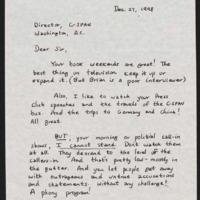 Dec. 27, 1998
Director, C-SPAN
Washington, D.C.
Dear Sir,
Your book weekends are great! The
best thing on television. Keep it up or
expand it. (But Brian is a poor interviewer)
Also, I like to watch your Press
Club speeches and the travels of the C-SPAN
bus. And the trips to Germany and China!
All great.
BUT, your morning or political call-in
shows, I cannot stand. Don't watch them
at all. They descend to the level of the
callers-in. And that's pretty low - mostly in
the gutter. And you let people get away
with outrageous and untrue accusations
and statements, without any challenge!
A phony program!